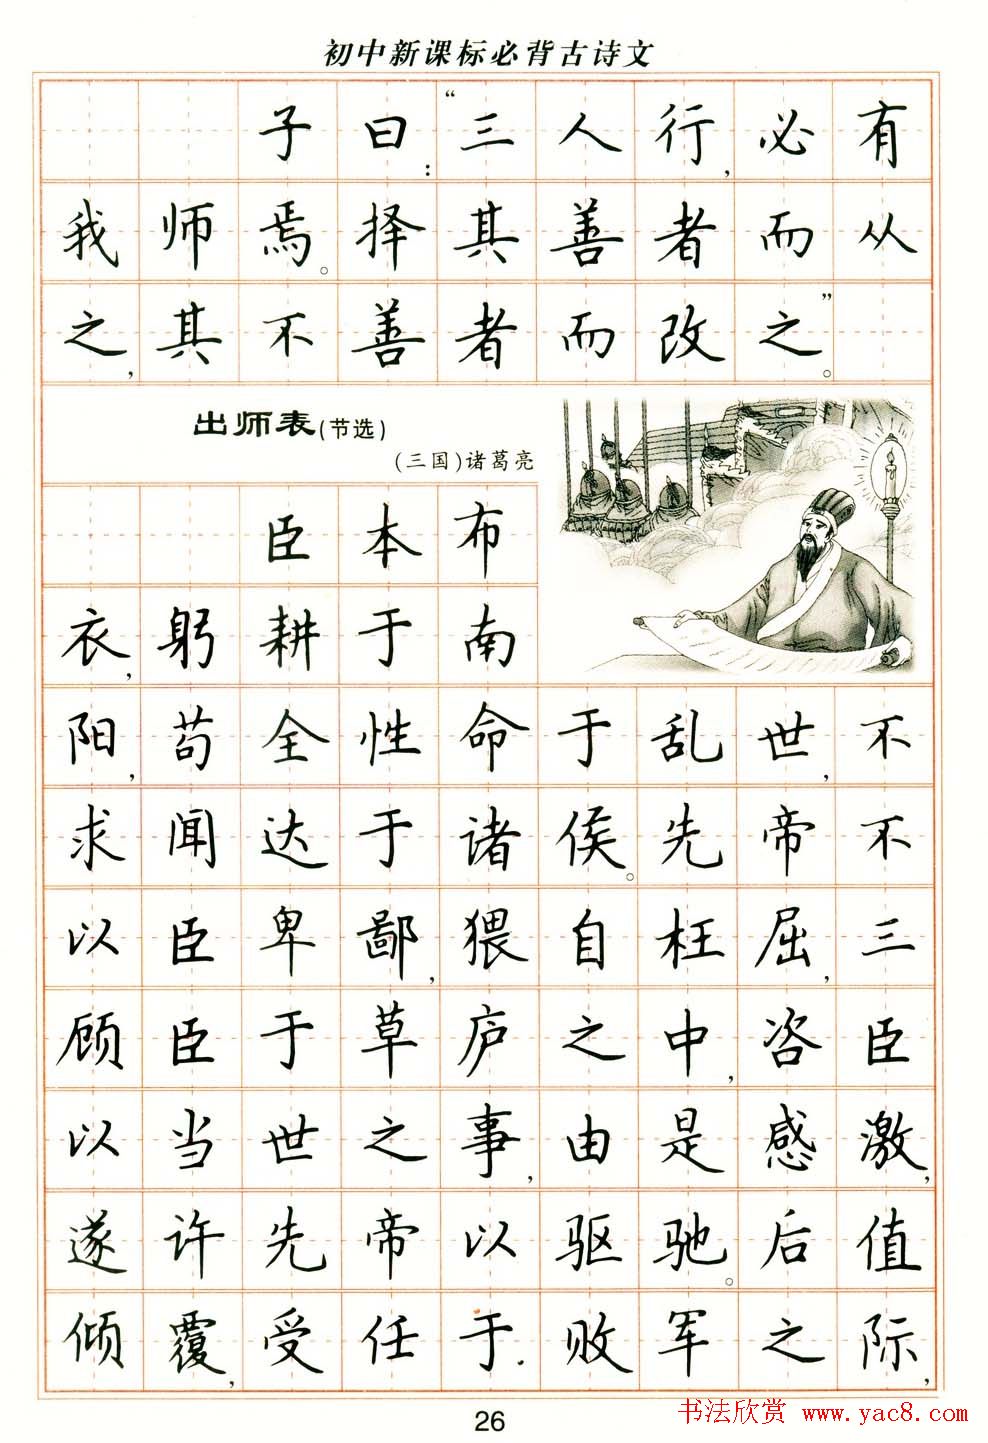 初中新课标必背古诗文
子曰：“三人行，必有
我师焉。择其善者而从
之，其不善者而改之。”
出师表(节选)
(三国)诸葛亮
臣本布
衣，躬耕于南
阳，苟全性命于乱世，不
求闻达于诸侯。先帝不
以臣卑鄙，猥自枉屈，三
顾臣于草庐之中，咨臣
以当世之事，由是感激，
遂许先帝以驱驰。后值
倾覆，受任于败军之际，
26
书法欣赏 www.yac8.com